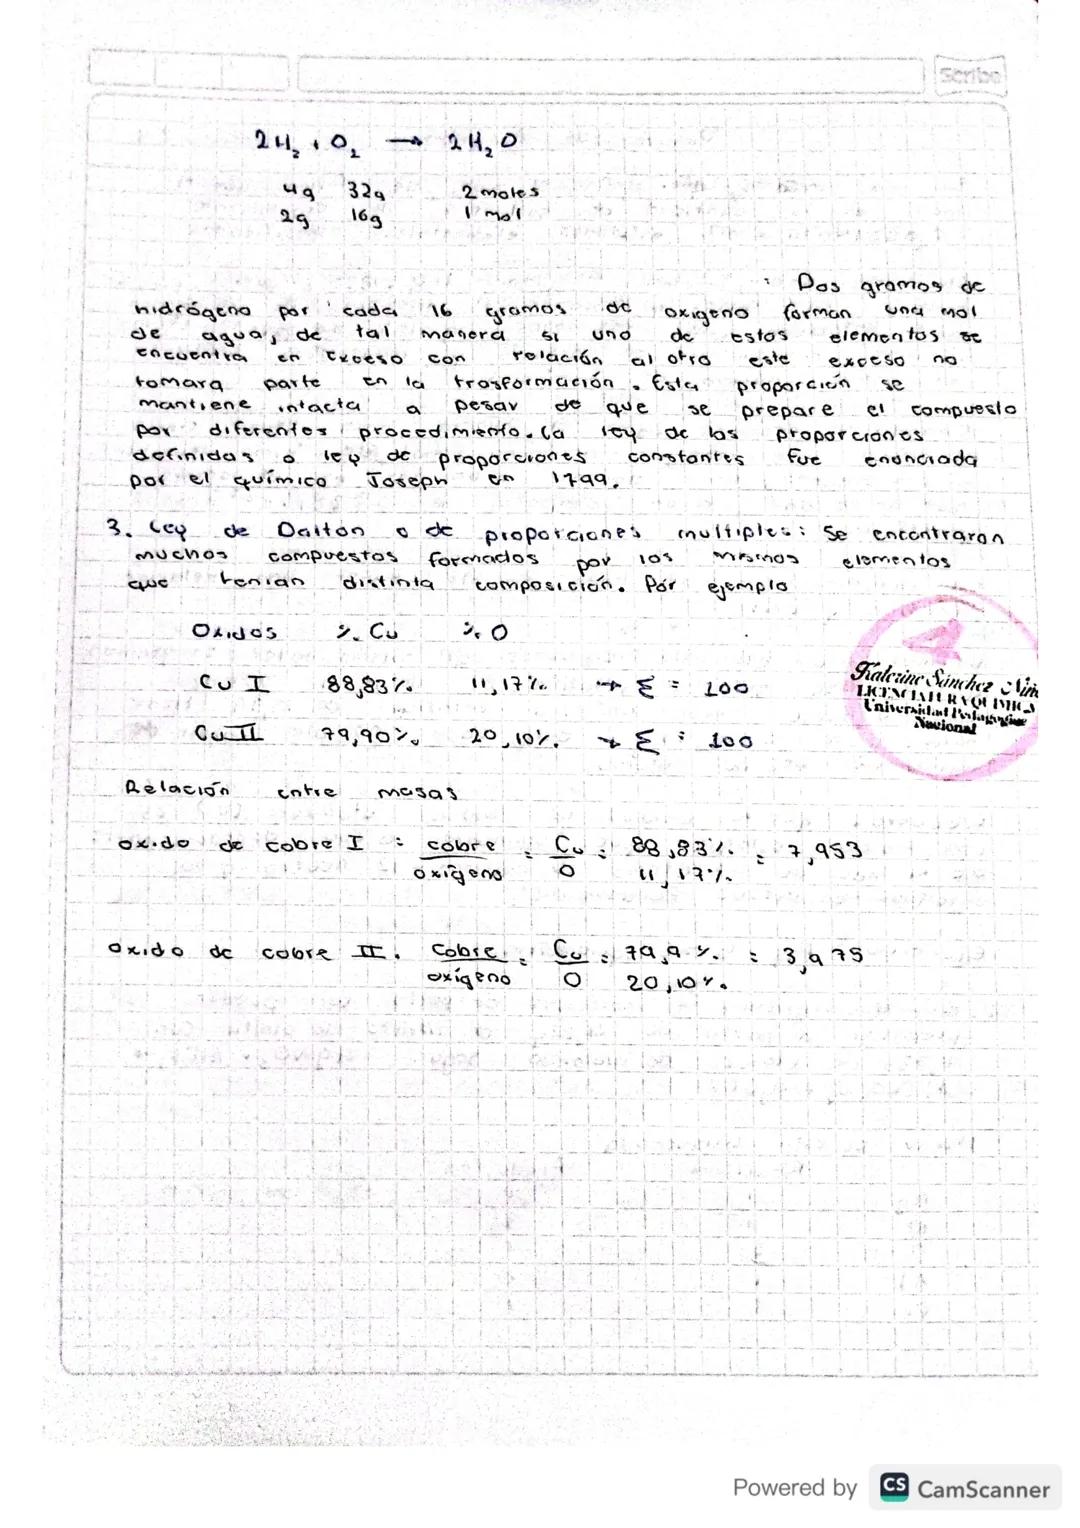 Scribe
2H₂ + O₂ → 2H₂O
4g 32g 2 moles
2g 16g 1 mol
: Dos gramos de
hidrógeno por cada 16 gramos de oxigeno forman una mol
de agua, de tal manera si uno de estos elementos se
encuentra en exceso con relación al otro este exceso no
tomara parte en la trasformación. Esta proporción se
mantiene intacta a pesar de que se prepare el compuesto
por diferentes procedimiento. La ley de las proporciones
definidas o ley de proporciones constantes fue enunciada
por el químico Joseph en 1799.
3. Ley de Dalton o de proporciones multiples: Se encontraron
muchos compuestos formados por los mismos elementos
que tenian distinta composición. Por ejemplo
Oxidos % Cu % O
Cu I 88,83% 11,17% → Σ = 100
Cu II 79,90% 20,10% → Σ = 100
Katerine Sánchez Niño
LICENCIATURA QUIMICA
Universidad Pedagogica
Nacional
Relación entre masas
oxido de cobre I : cobre = Cu = 88,83% = 7,953
oxígeno O 11,17%
oxido de cobre II. Cobre = Cu = 79,9 % = 3,975
oxígeno O 20,10%.
Powered by CS CamScanner